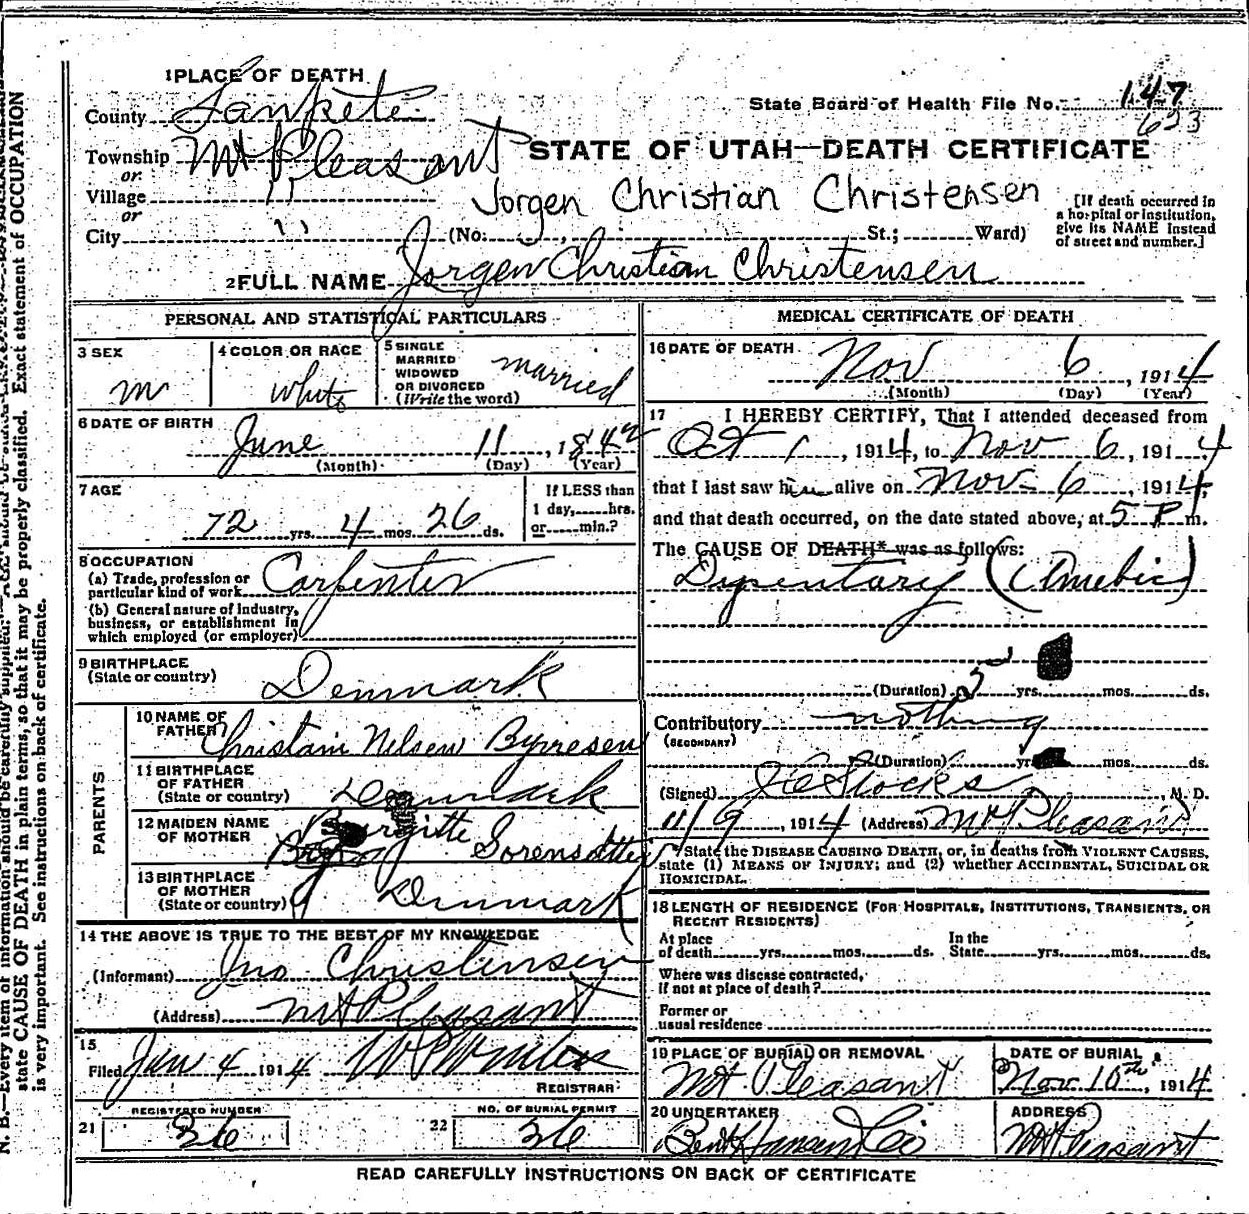 1 PLACE OF DEATH
County Sanpete
State Board of Health File No. 147
623
Township Mt Pleasant
or
Village "
or
City "
STATE OF UTAH—DEATH CERTIFICATE
Jorgen Christian Christensen
(No. St.; Ward)
[If death occurred in
a hospital or institution,
give its NAME instead
of street and number.]
2 FULL NAME Jorgen Christian Christensen
PERSONAL AND STATISTICAL PARTICULARS
3 SEX
m
4 COLOR OR RACE
white
5 SINGLE
MARRIED
WIDOWED
OR DIVORCED
(Write the word)
married
6 DATE OF BIRTH
June 11, 1842
(Month) (Day) (Year)
7 AGE
72 yrs. 4 mos. 26 ds.
If LESS than
1 day, hrs.
or min.?
8 OCCUPATION
(a) Trade, profession or
particular kind of work Carpenter
(b) General nature of industry,
business, or establishment in
which employed (or employer)
9 BIRTHPLACE
(State or country)
Denmark
PARENTS
10 NAME OF
FATHER Christain Nelsen Byrresen
11 BIRTHPLACE
OF FATHER
(State or country) Denmark
12 MAIDEN NAME
OF MOTHER Birgitte Sorensdtter
13 BIRTHPLACE
OF MOTHER
(State or country) Denmark
14 THE ABOVE IS TRUE TO THE BEST OF MY KNOWLEDGE
(Informant) Jno Christensen
(Address) Mt Pleasant
15
Filed Jan 4 1914
REGISTRAR
REGISTERED NUMBER
21 36
NO. OF BURIAL PERMIT
22 36
MEDICAL CERTIFICATE OF DEATH
16 DATE OF DEATH
Nov 6, 1914
(Month) (Day) (Year)
17 I HEREBY CERTIFY, That I attended deceased from
Oct 1, 1914, to Nov 6, 1914
that I last saw him alive on Nov 6, 1914,
and that death occurred, on the date stated above, at 5 P m.
The CAUSE OF DEATH* was as follows:
Dysentary (Amebic)
(Duration) yrs. mos. ds.
Contributory nothing
(SECONDARY)
(Duration) yrs. mos. ds.
(Signed) M. D.
11/9, 1914 (Address) Mt Pleasant
*State the DISEASE CAUSING DEATH, or, in deaths from VIOLENT CAUSES,
state (1) MEANS OF INJURY; and (2) whether ACCIDENTAL, SUICIDAL OR
HOMICIDAL.
18 LENGTH OF RESIDENCE (FOR HOSPITALS, INSTITUTIONS, TRANSIENTS, OR
RECENT RESIDENTS)
At place
of death yrs. mos. ds.
In the
State yrs. mos. ds.
Where was disease contracted,
if not at place of death?
Former or
usual residence
19 PLACE OF BURIAL OR REMOVAL
Mt Pleasant
DATE OF BURIAL
Nov 10th, 1914
20 UNDERTAKER
Bent Hansen
ADDRESS
Mt Pleasant
READ CAREFULLY INSTRUCTIONS ON BACK OF CERTIFICATE
N. B.—Every item of information should be carefully supplied.
state CAUSE OF DEATH in plain terms, so that it may be properly classified. Exact statement of OCCUPATION
is very important. See instructions on back of certificate.